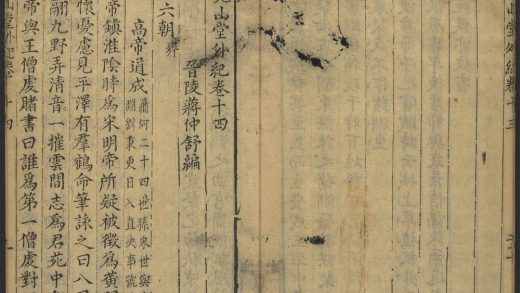 山堂外紀卷十三
山堂外紀卷十四
晉陵蔣仲舒編
六朝 齊
高帝道成
蕭何二十四世孫宋世與
劉秉更日入直央事號
帝鎮淮陰時爲宋明帝所疑被徵爲黃
懷憂慮見平澤有羣鶴命筆詠之曰八
翮九野弄清音一摧雲間志爲君苑中
帝與王僧虔賭書曰誰爲第一僧虔對